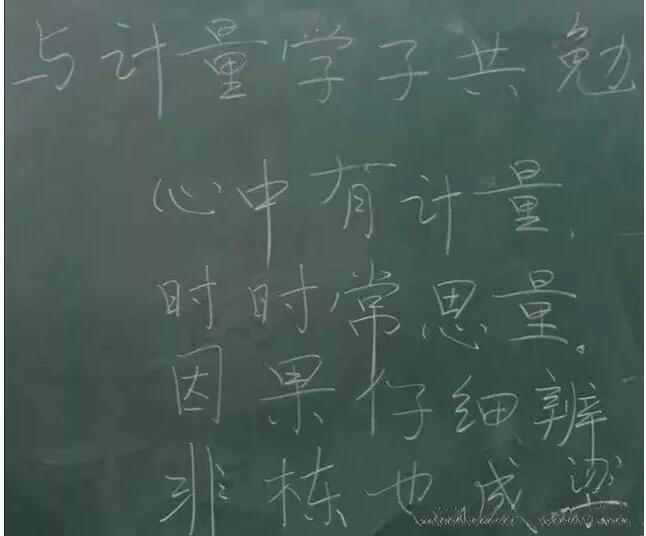 与计量学子共勉
心中有计量,
时时常思量。
因果仔细辨
非栋也成梁